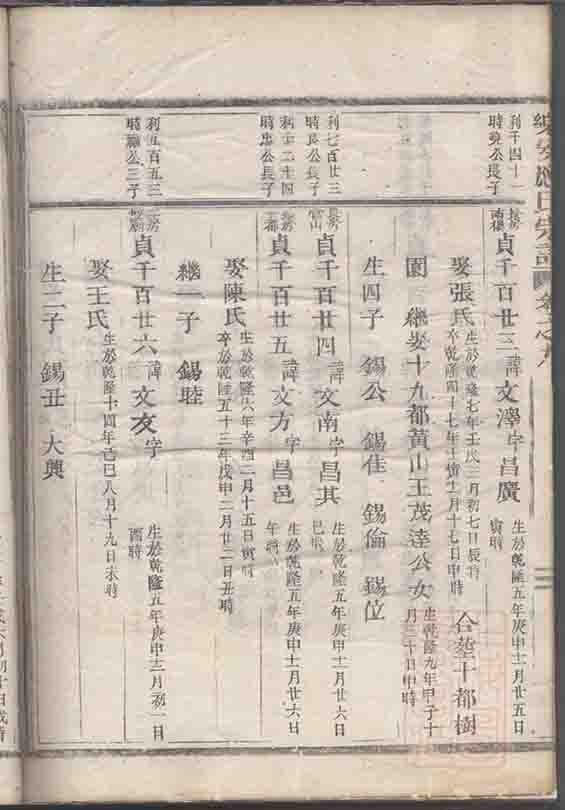 利千四十一
時變公長子
長房
貞千百廿三 諱文澤 字昌廣 生於乾隆五年庚申十一月廿五日
寅時
娶張氏 生於乾隆七年壬戌三月初七日辰時
卒乾隆四十七年壬寅十一月十七日申時
合塟十都樹
園 繼娶十九都黃山王茂達公女 生乾隆九年甲子十
月三十日申時
生四子 錫公 錫佳 錫倫 錫位
利七百廿三
時良公長子
長房
貞千百廿四 諱文南 字昌其 生於乾隆五年庚申十一月廿六日
巳時
利六二十四
時忠公長子
貞千百廿五 諱文方 字昌邑 生於乾隆五年庚申十一月廿六日
午時
娶陳氏 生於乾隆六年辛酉二月十五日寅時
卒於乾隆五十三年戊申二月廿二日丑時
繼一子 錫睦
利五百五三
公三子
貞千百廿六 諱文友 字 生於乾隆五年庚申十二月初一日
酉時
娶王氏 生於乾隆十四年己巳八月十九日未時
生二子 錫丑 大興